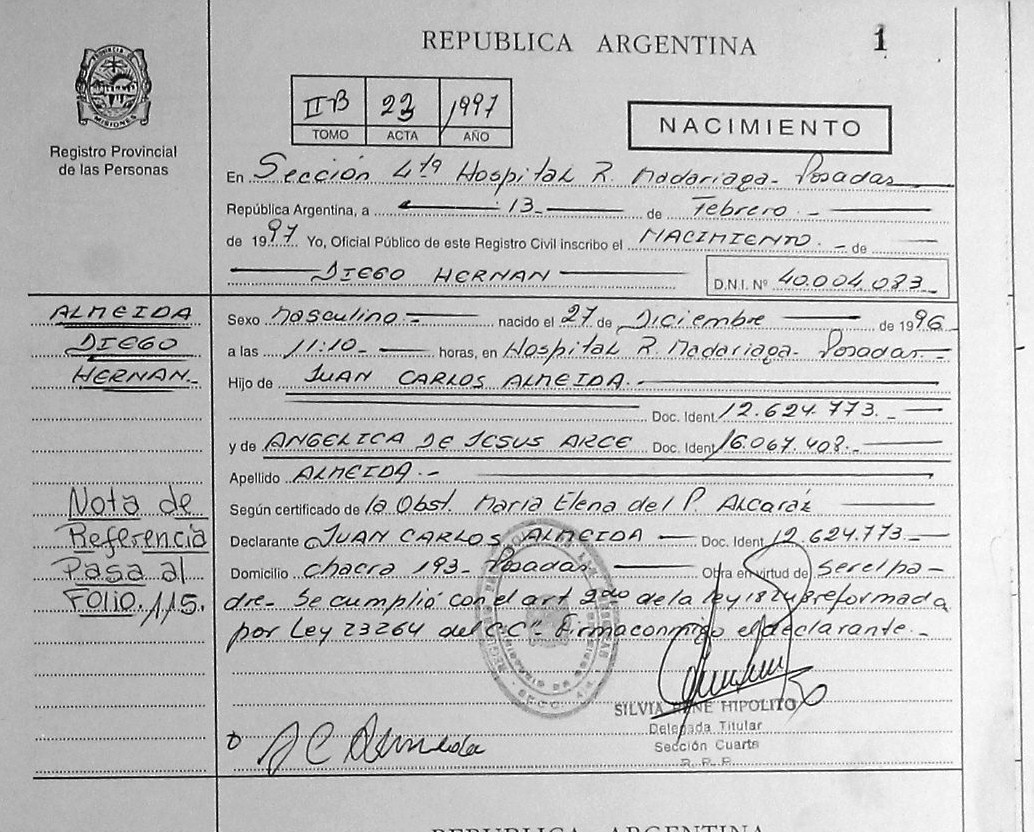 REPUBLICA ARGENTINA
1
PROVINCIA DE
MISIONES
Registro Provincial
de las Personas
II B 23 1997
TOMO ACTA AÑO
NACIMIENTO
En Sección 4ta Hospital R. Madariaga - Posadas
República Argentina, a 13 - de Febrero. -
de 1997 Yo, Oficial Público de este Registro Civil inscribo el NACIMIENTO. - de
DIEGO HERNAN
D.N.I. Nº 40.004.083 -
ALMEIDA
DIEGO
HERNAN. -
Sexo Masculino - nacido el 27 de Diciembre de 1996 -
a las 11:10 - horas, en Hospital R. Madariaga - Posadas. -
Hijo de JUAN CARLOS ALMEIDA. -
Doc. Ident. 12.624.773. -
y de ANGELICA DE JESUS ARCE Doc. Ident. 16.067.408. -
Apellido ALMEIDA. -
Según certificado de la Obst. Maria Elena del P. Alcaráz
Declarante JUAN CARLOS ALMEIDA Doc. Ident. 12.624.773. -
Domicilio chacra 193 - Posadas Obra en virtud de ser el pa-
dre - Se cumplió con el art 2do de la ley 18248 reformada
por Ley 23264 del C.C" - Firma conmigo el declarante. -
Nota de
Referencia
Pasa al
Folio. 115.
J C Almeida
SILVIA RENE HIPOLITO
Delegada Titular
Sección Cuarta
R. P. P.
REPUBLICA ARGENTINA